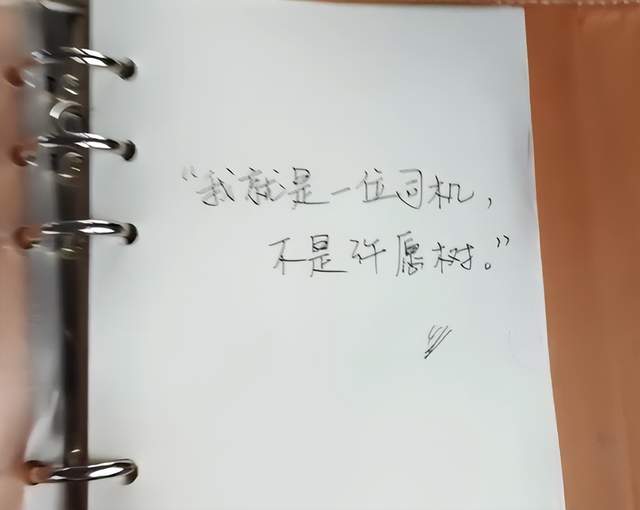 “我就是一位司机，
不是许愿树。”